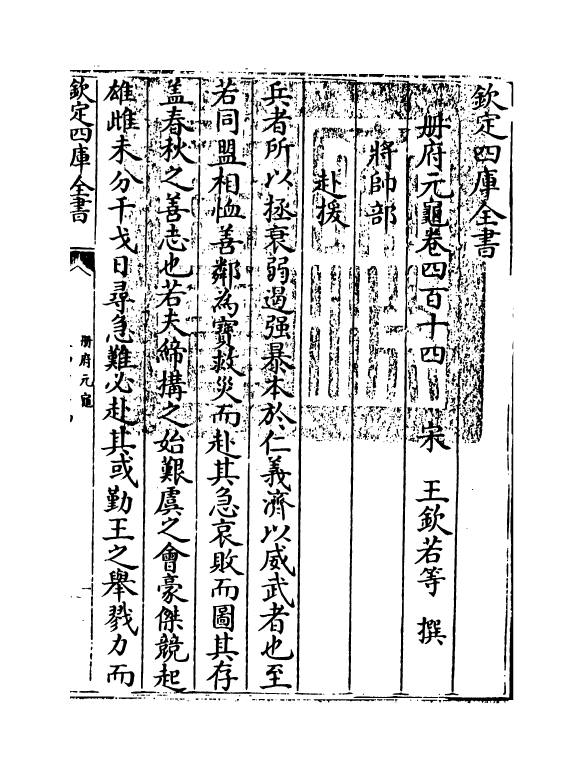 欽定四庫全書
册府元龜卷四百十四　宋　王欽若等　撰
將帥部
赴援
兵者所以拯衰弱遏强暴本於仁義濟以威武者也至
若同盟相恤善鄰為寳救災而赴其急哀敗而圖其存
盖春秋之善志也若夫締搆之始艱虞之會豪傑競起
雄雌未分干戈日尋急難必赴其或勤王之舉戮力而
欽定四庫全書
册府元龜